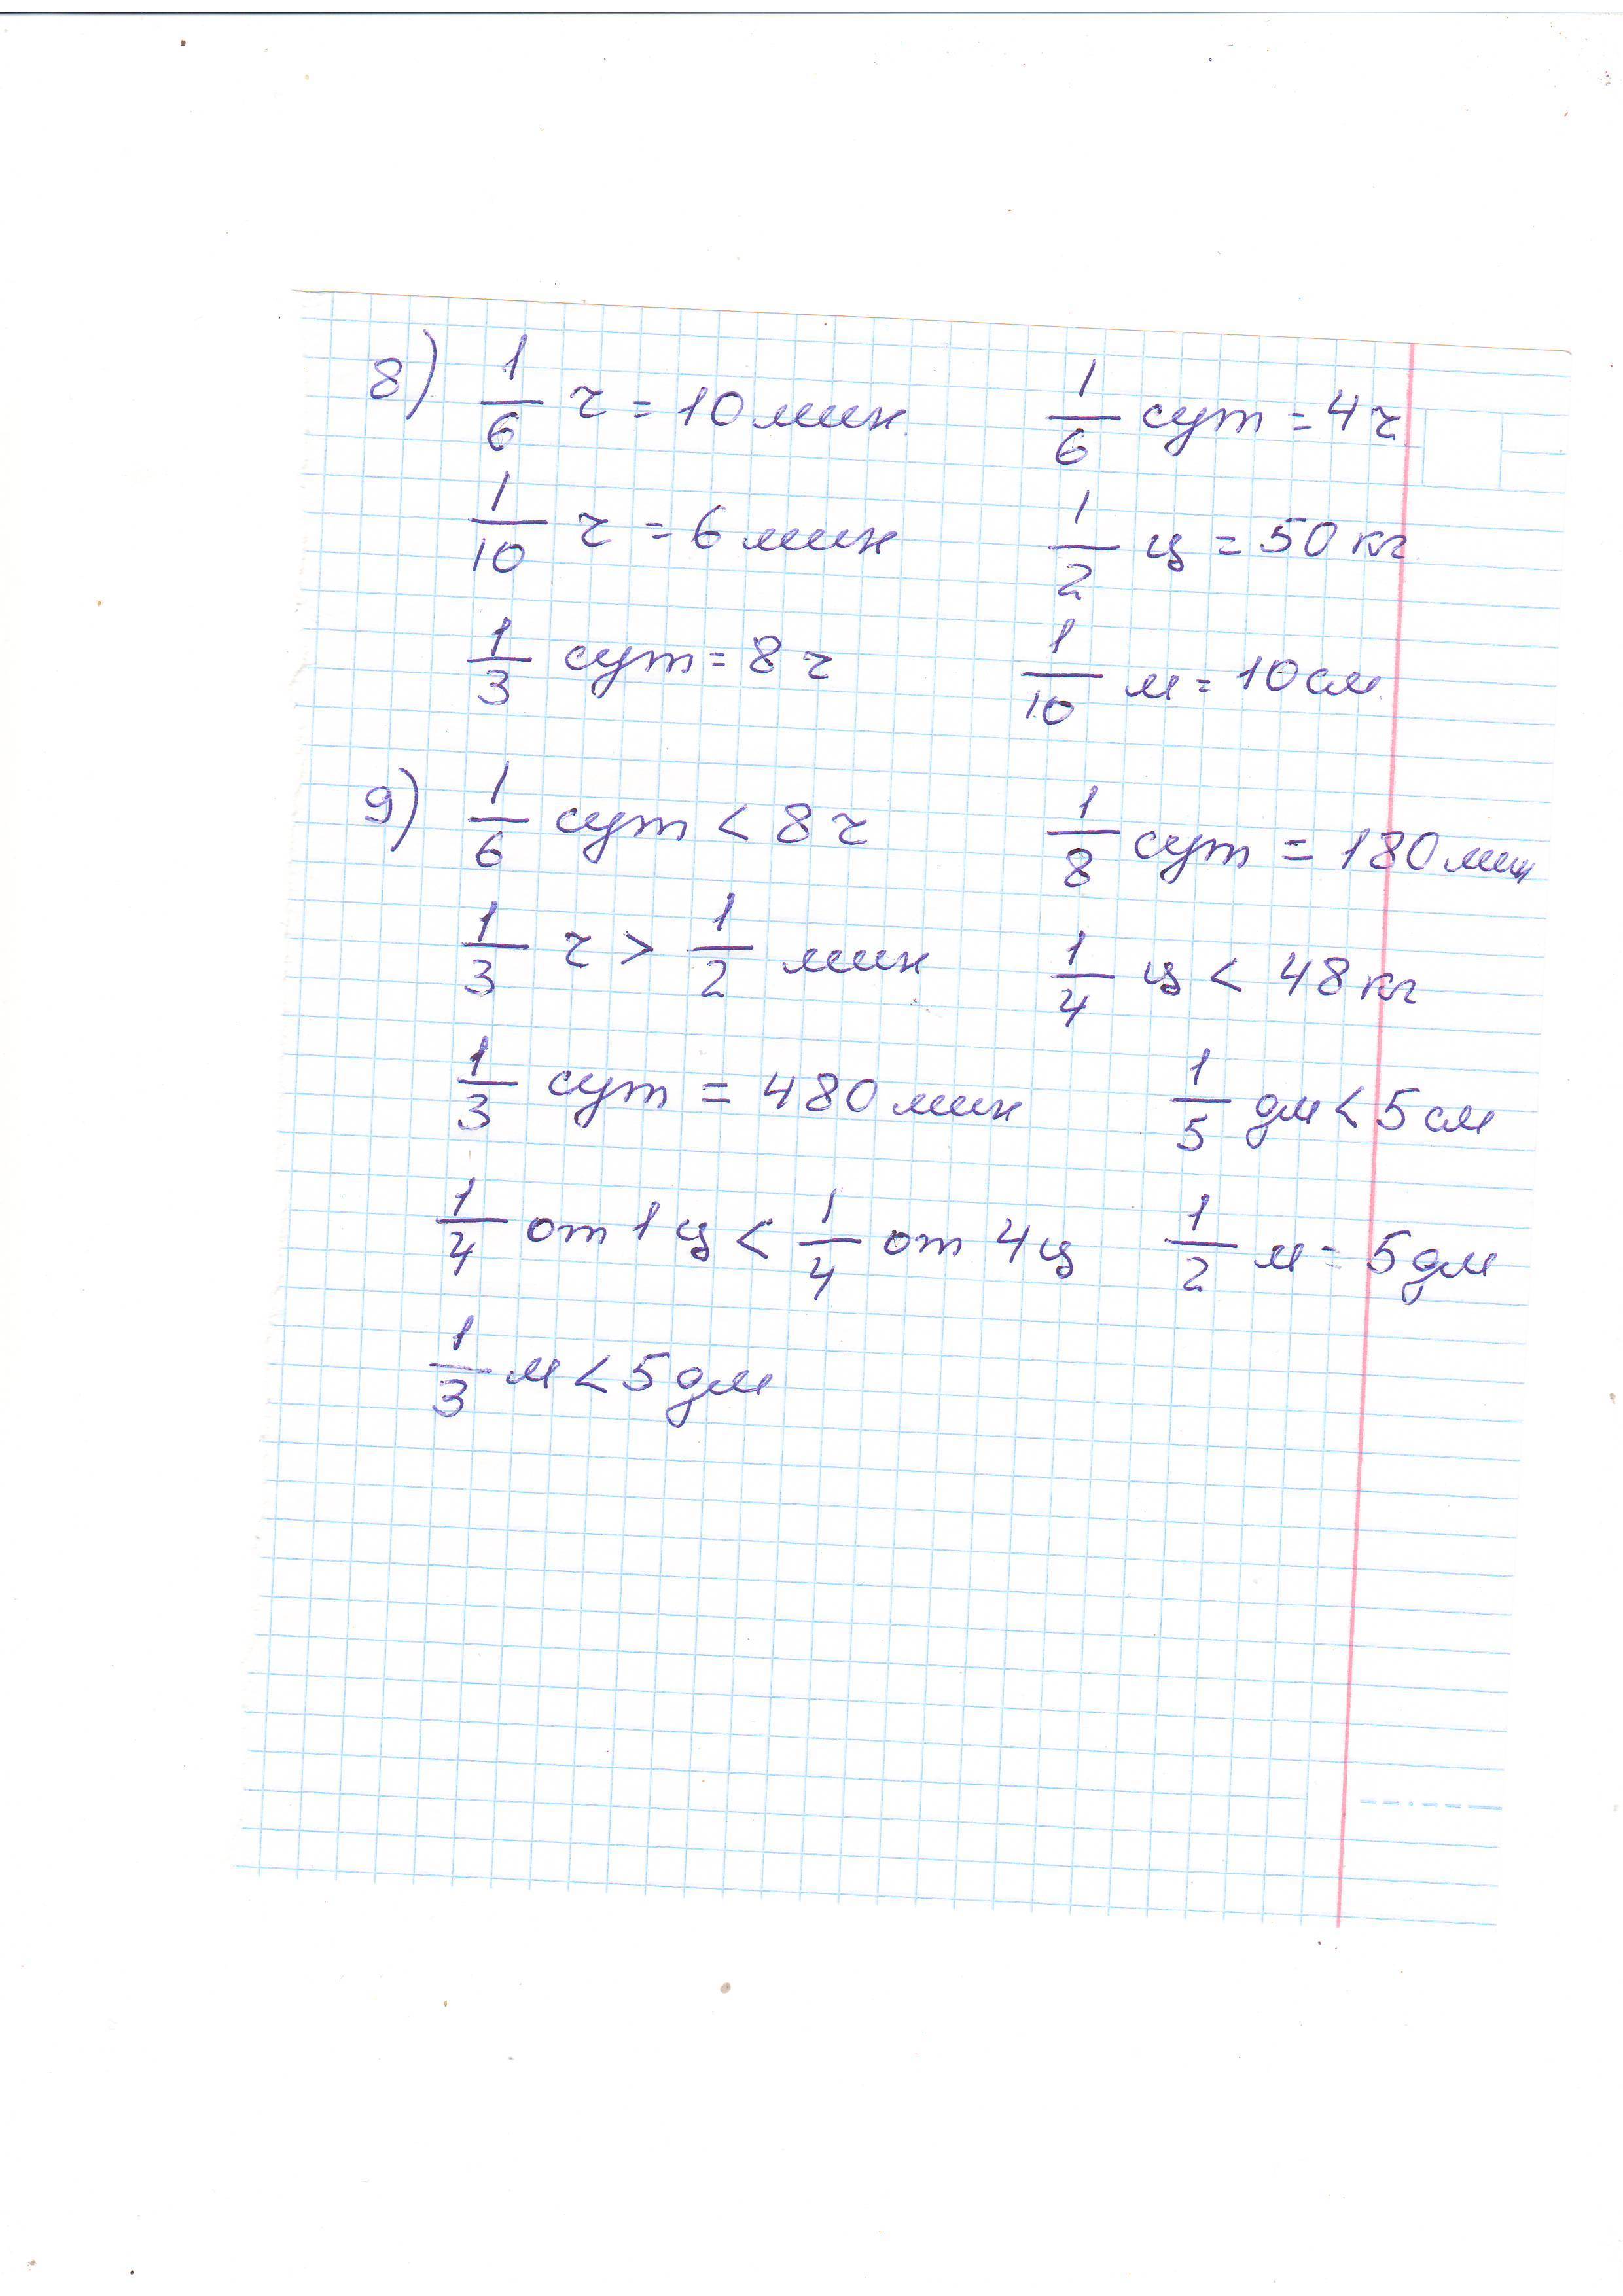 8) 1/6 ч = 10 мин 1/6 сут = 4 ч
1/10 ч = 6 мин 1/2 ц = 50 кг
1/3 сут = 8 ч 1/10 м = 10 см
9) 1/6 сут < 8 ч 1/8 сут = 180 мин
1/3 ч > 1/2 мин 1/4 ц < 48 кг
1/3 сут = 480 мин 1/5 дм < 5 см
1/4 от 1 ц < 1/4 от 4 ц 1/2 м = 5 дм
1/3 м < 5 дм